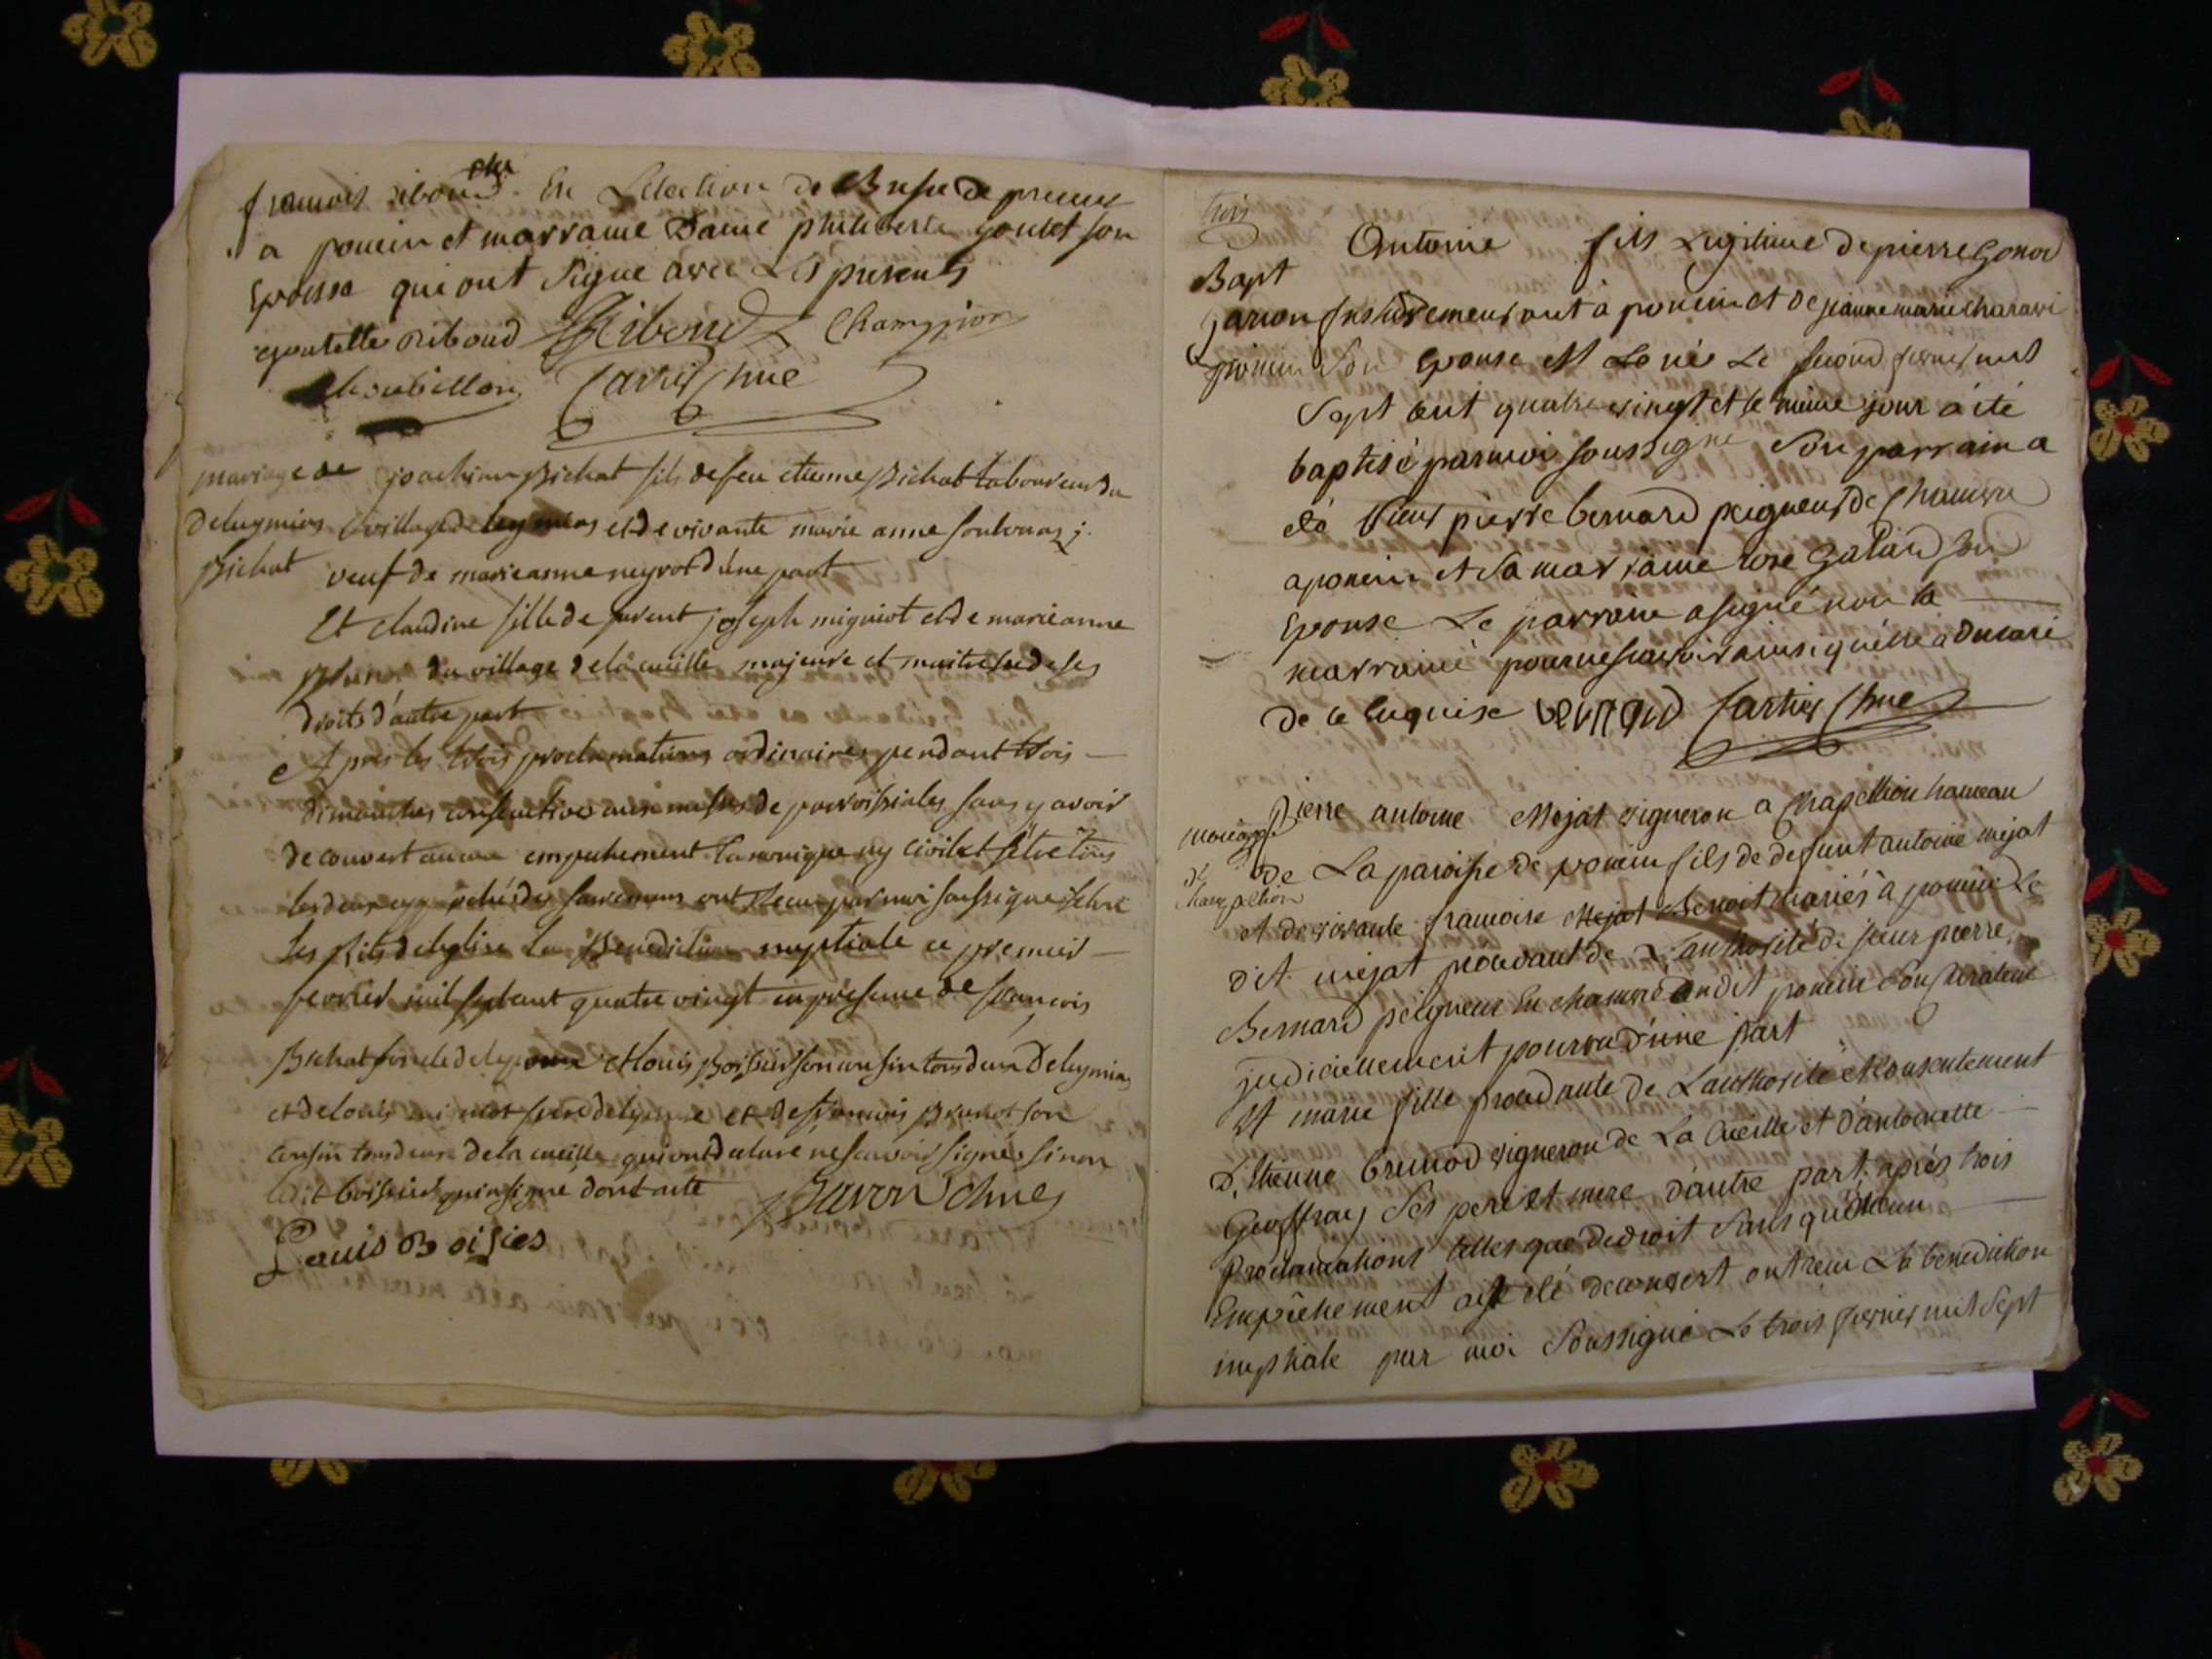 françois riboud Elu En Lelection de Bresse de
a poncin et marraine Dame philiberte goutet son
Epouse qui ont Signé avec Les presents
goutette Riboud Riboud Champion
Savrij Cure
mariage de joachim Bichat fils de feu etienne Bichat laboureur du
deleymias village de leymias et de vivante marie anne
Bichat veuf de marieanne neyrod d'une part
Et claudine fille de joseph migniot et de marieanne
du village de la cueille majeure et maitresse de ses
droits d'autre part
Apres les trois proclamations ordinaires pendant trois
dimanches consecutives aux messes de parroissiales sans y avoir
decouvert aucun empechement canonique ny civil et s'étre tous
les deux des sacremens ont receu par moi soussigné selon
les Rits deleglise la Benediction nuptiale ce premier
fevrier mil sept cent quatre vingt en présence de françois
Bichat et louis Boisies son cousin tous deux deleymias
et de louis mi niot et de françois son
cousin tous deux de la cueille qui ont declaré ne scavoir signés sinon
ledit boissies qui a signé dont acte
Louis Boisies
trois
Antoine fils Legitime de pierre Gonod
Bapt
garçon demeurant à poncin et de jeanne marie
poncin Son Epouse est né Le second fevrier mil
Sept cent quatre vingt et le même jour a été
baptisé par moi soussigné Son parrain a
été Sieur pierre bernard peigneur de Chanvre
a poncin et Sa marraine rose galand Son
Epouse Le parrain a signé non la
marraine pour ne scavoir ainsi qu'elle a declaré
de ce enquise Bernard Cure
Pierre antoine Mejat vigneron a Chapellion hameau
mariage de La paroisse de poncin fils de defunt antoine mejat
de
Chappellion
et de vivante françoise Mejat Benoit mariés à poncin Le
dit mejat procedant de L'authorité de sieur pierre
Bernard peigneur En chanvre audit poncin Son Curateur
judiciellement pourvu d'une part
Et marie fille procedante de L'authorité et consentement
D'Etienne brunod vigneron de La Cueille et d'antoinette
Geoffray Ses pere et mere d'autre part, après trois
Proclamations telles que de droit Sans qu'aucun
Empêchement aist été decouvert ont reçu La benediction
nuptiale par moi Soussigné Le trois fevrier mil Sept